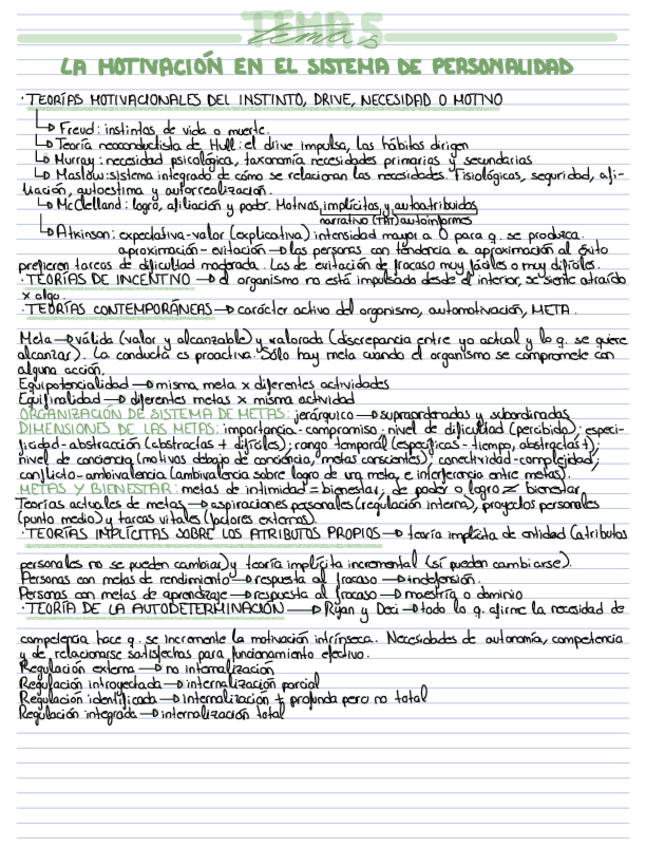 TEMA 5
tema 5
LA MOTIVACIÓN EN EL SISTEMA DE PERSONALIDAD
· TEORÍAS MOTIVACIONALES DEL INSTINTO, DRIVE, NECESIDAD O MOTIVO
Freud: instintos de vida o muerte.
Teoría neoconductista de Hull: el drive impulsa, los hábitos dirigen
Murray: necesidad psicológica, taxonomía necesidades primarias y secundarias
Maslow: sistema integrado de cómo se relacionan las necesidades. Fisiológicas, seguridad, afi-
liación, autoestima y autorrealización.
McClelland: logro, afiliación y poder. Motivos implícitos y autoatribuidos
narrativo (TAT) autoinformes
Atkinson: expectativa-valor (explicativa) intensidad mayor a 0 para q. se produzca.
aproximación - evitación → las personas con tendencia a aproximación al éxito
prefieren tareas de dificultad moderada. Las de evitación de fracaso muy fáciles o muy difíciles.
· TEORÍAS DE INCENTIVO → el organismo no está impulsado desde el interior, se siente atraído
x algo.
· TEORÍAS CONTEMPORÁNEAS → carácter activo del organismo, automotivación, META.
Meta → válida (valor y alcanzable) y valorada (discrepancia entre yo actual y lo q. se quiere
alcanzar). La conducta es proactiva. Sólo hay meta cuando el organismo se compromete con
alguna acción.
Equipotencialidad → misma meta x diferentes actividades
Equifinalidad → diferentes metas x misma actividad
ORGANIZACIÓN DE SISTEMA DE METAS: jerárquico → supraordenadas y subordinadas
DIMENSIONES DE LAS METAS: importancia-compromiso; nivel de dificultad (percibida); especi-
ficidad-abstracción (abstractas + difíciles); rango temporal (específicas - tiempo, abstractas +);
nivel de conciencia (motivos debajo de conciencia, metas conscientes); conectividad-complejidad;
conflicto-ambivalencia (ambivalencia sobre logro de una meta, e interferencia entre metas).
METAS Y BIENESTAR: metas de intimidad = bienestar; de poder o logro ≠ bienestar
Teorías actuales de metas → aspiraciones personales (regulación interna), proyectos personales
(punto medio) y tareas vitales (factores externos).
· TEORÍAS IMPLÍCITAS SOBRE LOS ATRIBUTOS PROPIOS → teoría implícita de entidad (atributos
personales no se pueden cambiar) y teoría implícita incremental (sí pueden cambiarse).
Personas con metas de rendimiento → respuesta al fracaso → indefensión.
Personas con metas de aprendizaje → respuesta al fracaso → maestría o dominio
· TEORÍA DE LA AUTODETERMINACIÓN → Ryan y Deci → todo lo q. afirme la necesidad de
competencia hace q. se incremente la motivación intrínseca. Necesidades de autonomía, competencia
y de relacionarse satisfechas para funcionamiento efectivo.
Regulación externa → no internalización
Regulación introyectada → internalización parcial
Regulación identificada → internalización + profunda pero no total
Regulación integrada → internalización total